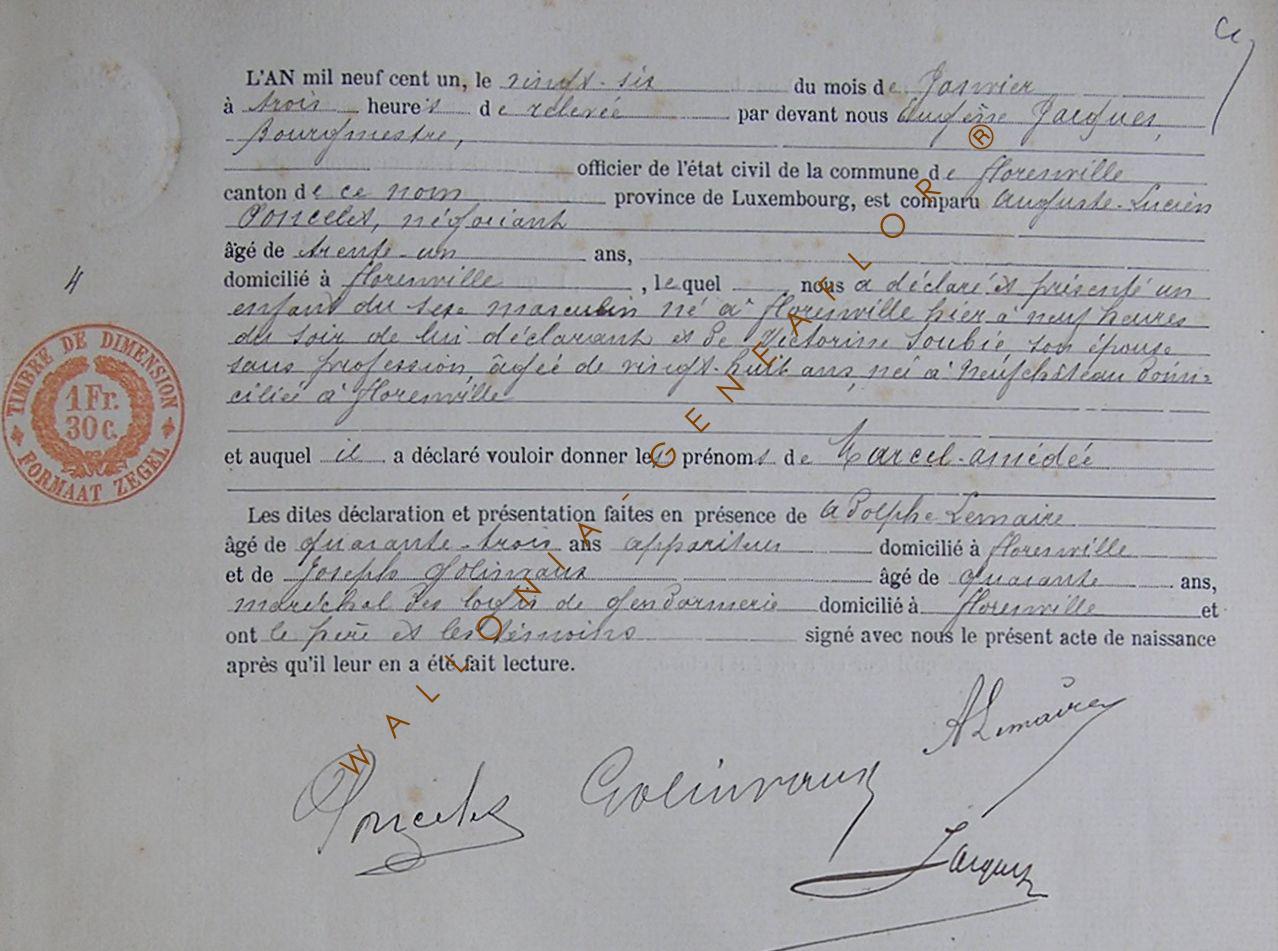 L'AN mil neuf cent un, le vingt-six du mois de Janvier
à trois heures de relevée par devant nous Eugène Jacques,
Bourgmestre,
officier de l'état civil de la commune de florenville
canton de ce nom province de Luxembourg, est comparu Auguste-Lucien
Poncelet, négociant
âgé de trente-un ans,
domicilié à florenville, lequel nous a déclaré et présenté un
4
enfant du sexe masculin né à florenville hier à neuf heures
du soir de lui déclarant et de Victorine Soubie, son épouse
sans profession, âgée de vingt-huit ans, née à Neufchâteau domi-
ciliée à florenville
TIMBRE DE DIMENSION
1 Fr.
30 c.
FORMAAT ZEGEL
et auquel il a déclaré vouloir donner les prénoms de Marcel-amédée
Les dites déclaration et présentation faites en présence de Adolphe Lemaire
âgé de quarante-trois ans appariteur domicilié à florenville
et de Joseph Golinvaux âgé de quarante ans,
maréchal des logis de gendarmerie domicilié à florenville et
ont le père et les témoins signé avec nous le présent acte de naissance
après qu'il leur en a été fait lecture.
ALemaire
Poncelet Golinvaux
Jacques
WALLONIA-GENEAFLOR ®